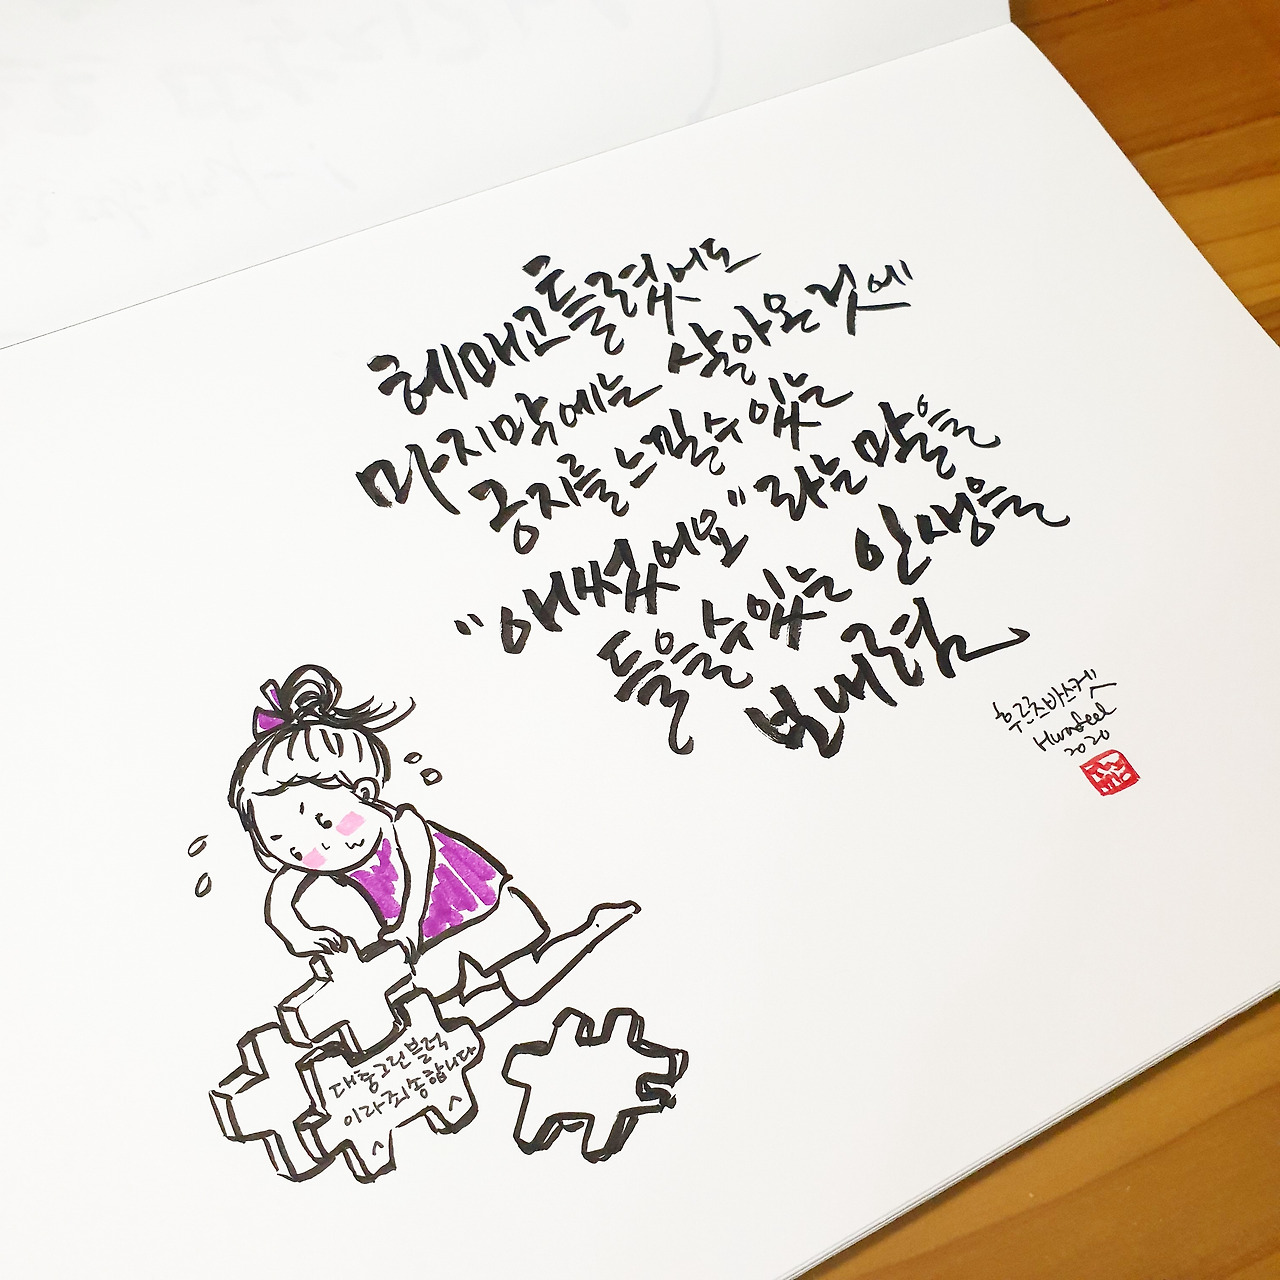 헤매고 흔들렸어도
마지막에는 살아온 것에
긍지를 느낄 수 있는
"애썼어요" 라는 말을
들을 수 있는 인생을
보내렴
후르츠바스켓
Hwafeel
2020
대충그린블럭
이라죄송합니다